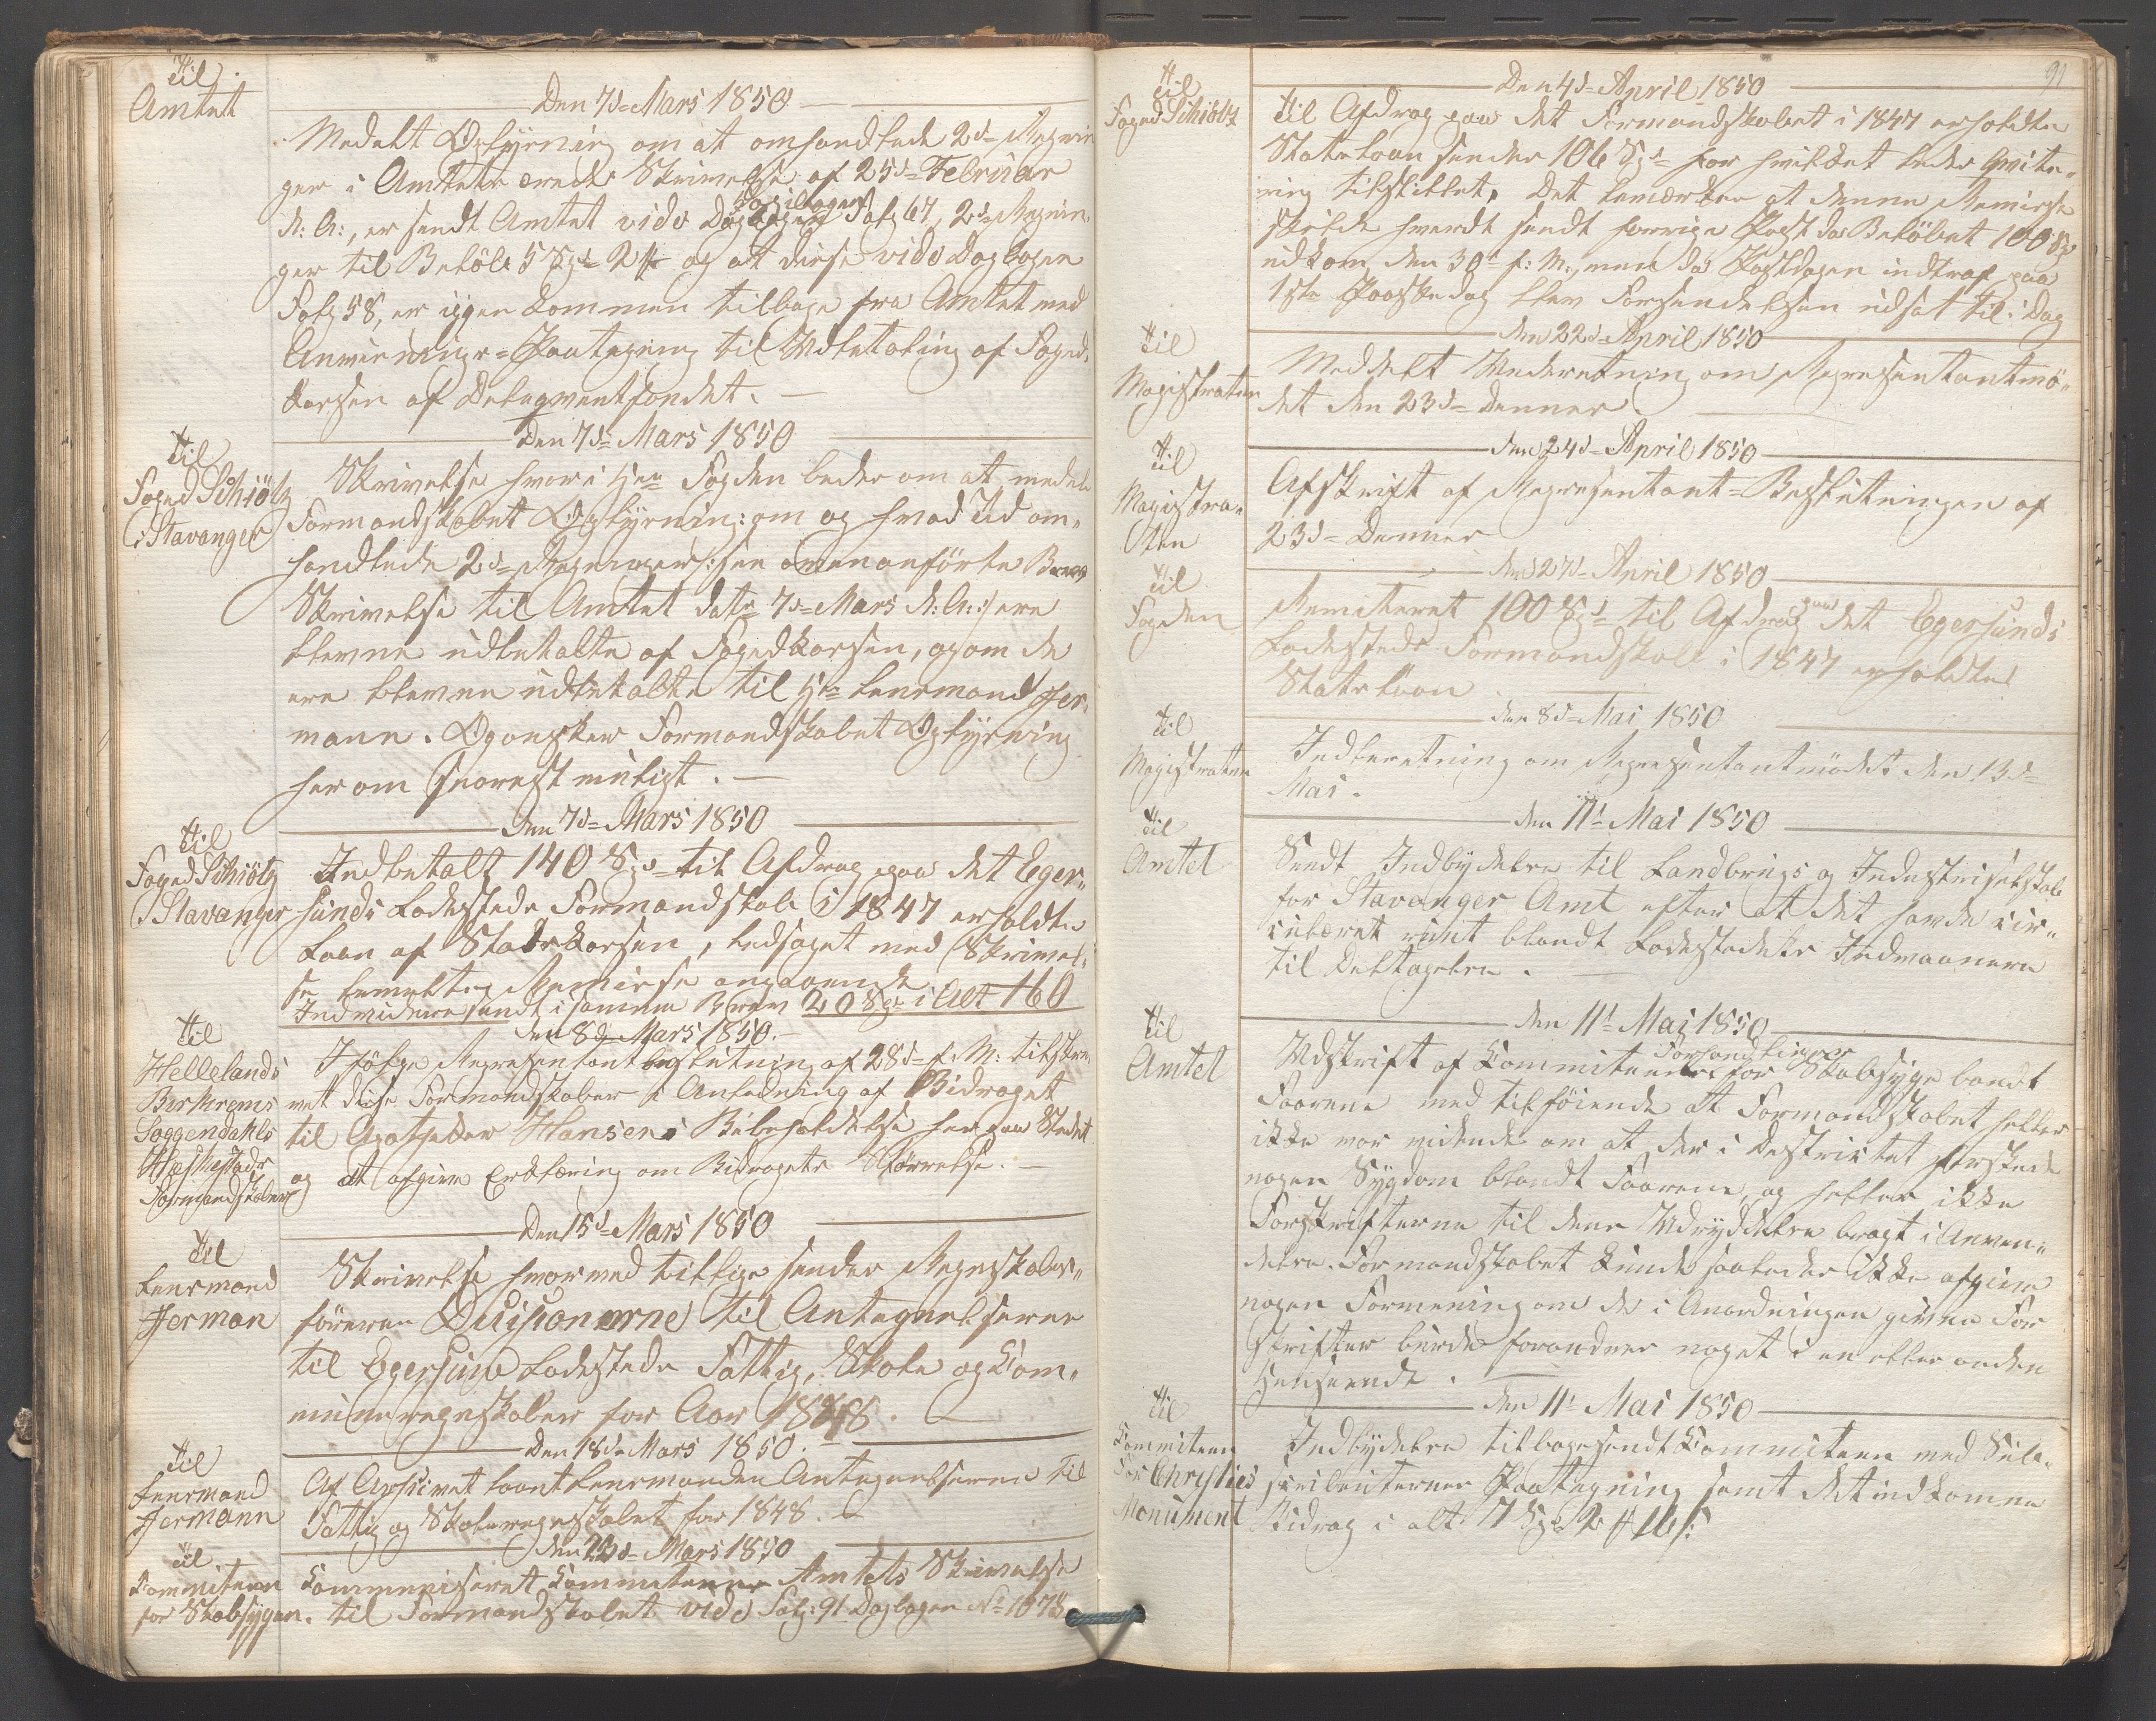 Til
Amtet
Den 7de Mars 1850
Meddelt Oplysning om at omhandlede 2de Regnin
ger i Amtets ærede Skrivelse af 25de Februar
d: A:, er sendt Amtet vide Copibogen Folg 67, 2de Regnin,
ger til Beløb 5 Spd 2 # og at disse vide Dagbogen
Folg 58, er igjen kommen tilbage fra Amtet med
Anvisnings-Paategning til Udbetaling af Foged,
kassen af Delegventfondet.
Til
Foged Schiötz
i Stavanger
Den 7de Mars 1850
Skrivelse hvori Hrr Fogden bedes om at meddele
Formandskabet Oplysning: om og hvad Tid om,,
handlede 2de Regninger /: see ovenanförte Brev
Skrivelse til Amtet datr 7de Mars d: A: :/ ere
blevne udbetalte af Fogedkassen, og om de
ere blevne udbetalte til Hrr Lensmand Her,
mann. Og ønsker Formandskabet Oplysning
herom snarest muligt.
Til
Foged Schiötz
i Stavanger
Den 7de Mars 1850
Indbetalt 140 Spd til Afdrag paa det Eger,,
sunds Ladesteds Formandskab i 1847 erholdte
Laan af Statskassen, ledsaget med Skrivel,
se bemeldte Remisse angaaende
Endvidere sendt i samme Brev 20 Spd i Alt 160
Til
Hellelands
Birkrems
Soggendahls
Hæskestads
Formandskaber
den 8de Mars 1850.
Ifölge Repræsentantbeslutning af 28de f: M: tilskre,
vet disse Formandskaber i Anledning af Bidraget
til Apotheker Hansens Bibeholdelse her paa Stedet
og at afgive Erklæring om Bidragets Størrelse.
Til
Lensmand
Herman
Den 15de Mars 1850
Skrivelse hvorved tillige sendes Regnskabs,,
föreren Desisionerne til Antegnelserne
til Egersund Ladesteds Fattig, Skole og Com,,
muneregnskaber for Aar 1848.
Til
Lensmand
Hermann
Den 18de Mars 1850.
Af Archivet laant Lensmanden Antegnelserne til
Fattig og Skoleregnskabet for 1848.
Til
Kommiteen
for Skabsygen.
den 23de Mars 1850
Kommuniseret Kommiteen Amtets Skrivelse
til Formandskabet vide Folg: 91 Dagbogen No 1078
91
Til
Foged Schiötz
Den 4de April 1850
Til Afdrag paa det Formandskabet i 1847 erholdte
Statslaan sendes 106 Spd for hvilket bedes Qvite,,
ring tilstillet. Det bemærkes at denne Remisse
skulde hverdt sendt forrige Post da Beløbet 100 Spd
udkom den 30te f: M:, men da Postdagen indtraf paa
1ste Paaskedag blev Forsendelsen udsat til i Dag
Til
Magistraten
den 22de April 1850
Meddelt Underetning om Repræsentantmö,,
det den 23de Dennes
Til
Magistra,,
ten
den 24de April 1850
Afskrift af Repræsentant-Beslutningen af
23de Dennes
Til
Fogden
den 27de April 1850
Remiteret 100 Spd til Afdrag paa det Egersunds
Ladesteds Formandskab i 1847 erholdte
Statslaan.
Til
Magistraten
den 8de Mai 1850
Indberetning om Repræsentantmödet den 13de
Mai.
Til
Amtet
den 11te Mai 1850
Sendt Indbydelse til Landbrugs og Industriselskab
for Stavanger Amt efter at det havde cir,,
culeret runt blandt Ladestedets Indvaanere
til Deltagelse.
Til
Amtet
den 11te Mai 1850
Udskrift af Kommiteens Forhandlinger for Skabsyge bandt
Faarene med tilföiende at Formandskabet heller
ikke var vidende om at der i Destriktet herskede
nogen Sygdom blandt Faarene, og heller ikke
Forskrifterne til dens Udryddelse bragt i Anven,,
delse. Formandskabet kunde saaledes ikke afgive
nogen Formening om de i Anordningen givne For
skrifter burde forandres noget i en eller anden
Henseende.
Til
Kommiteen
for Christies
Monument
den 11te Mai 1850
Indbydelse tilbagesendt Kommiteen med
Paategning samt det indkomne
Bidrag i alt 7 Spd 2 # 16 s: